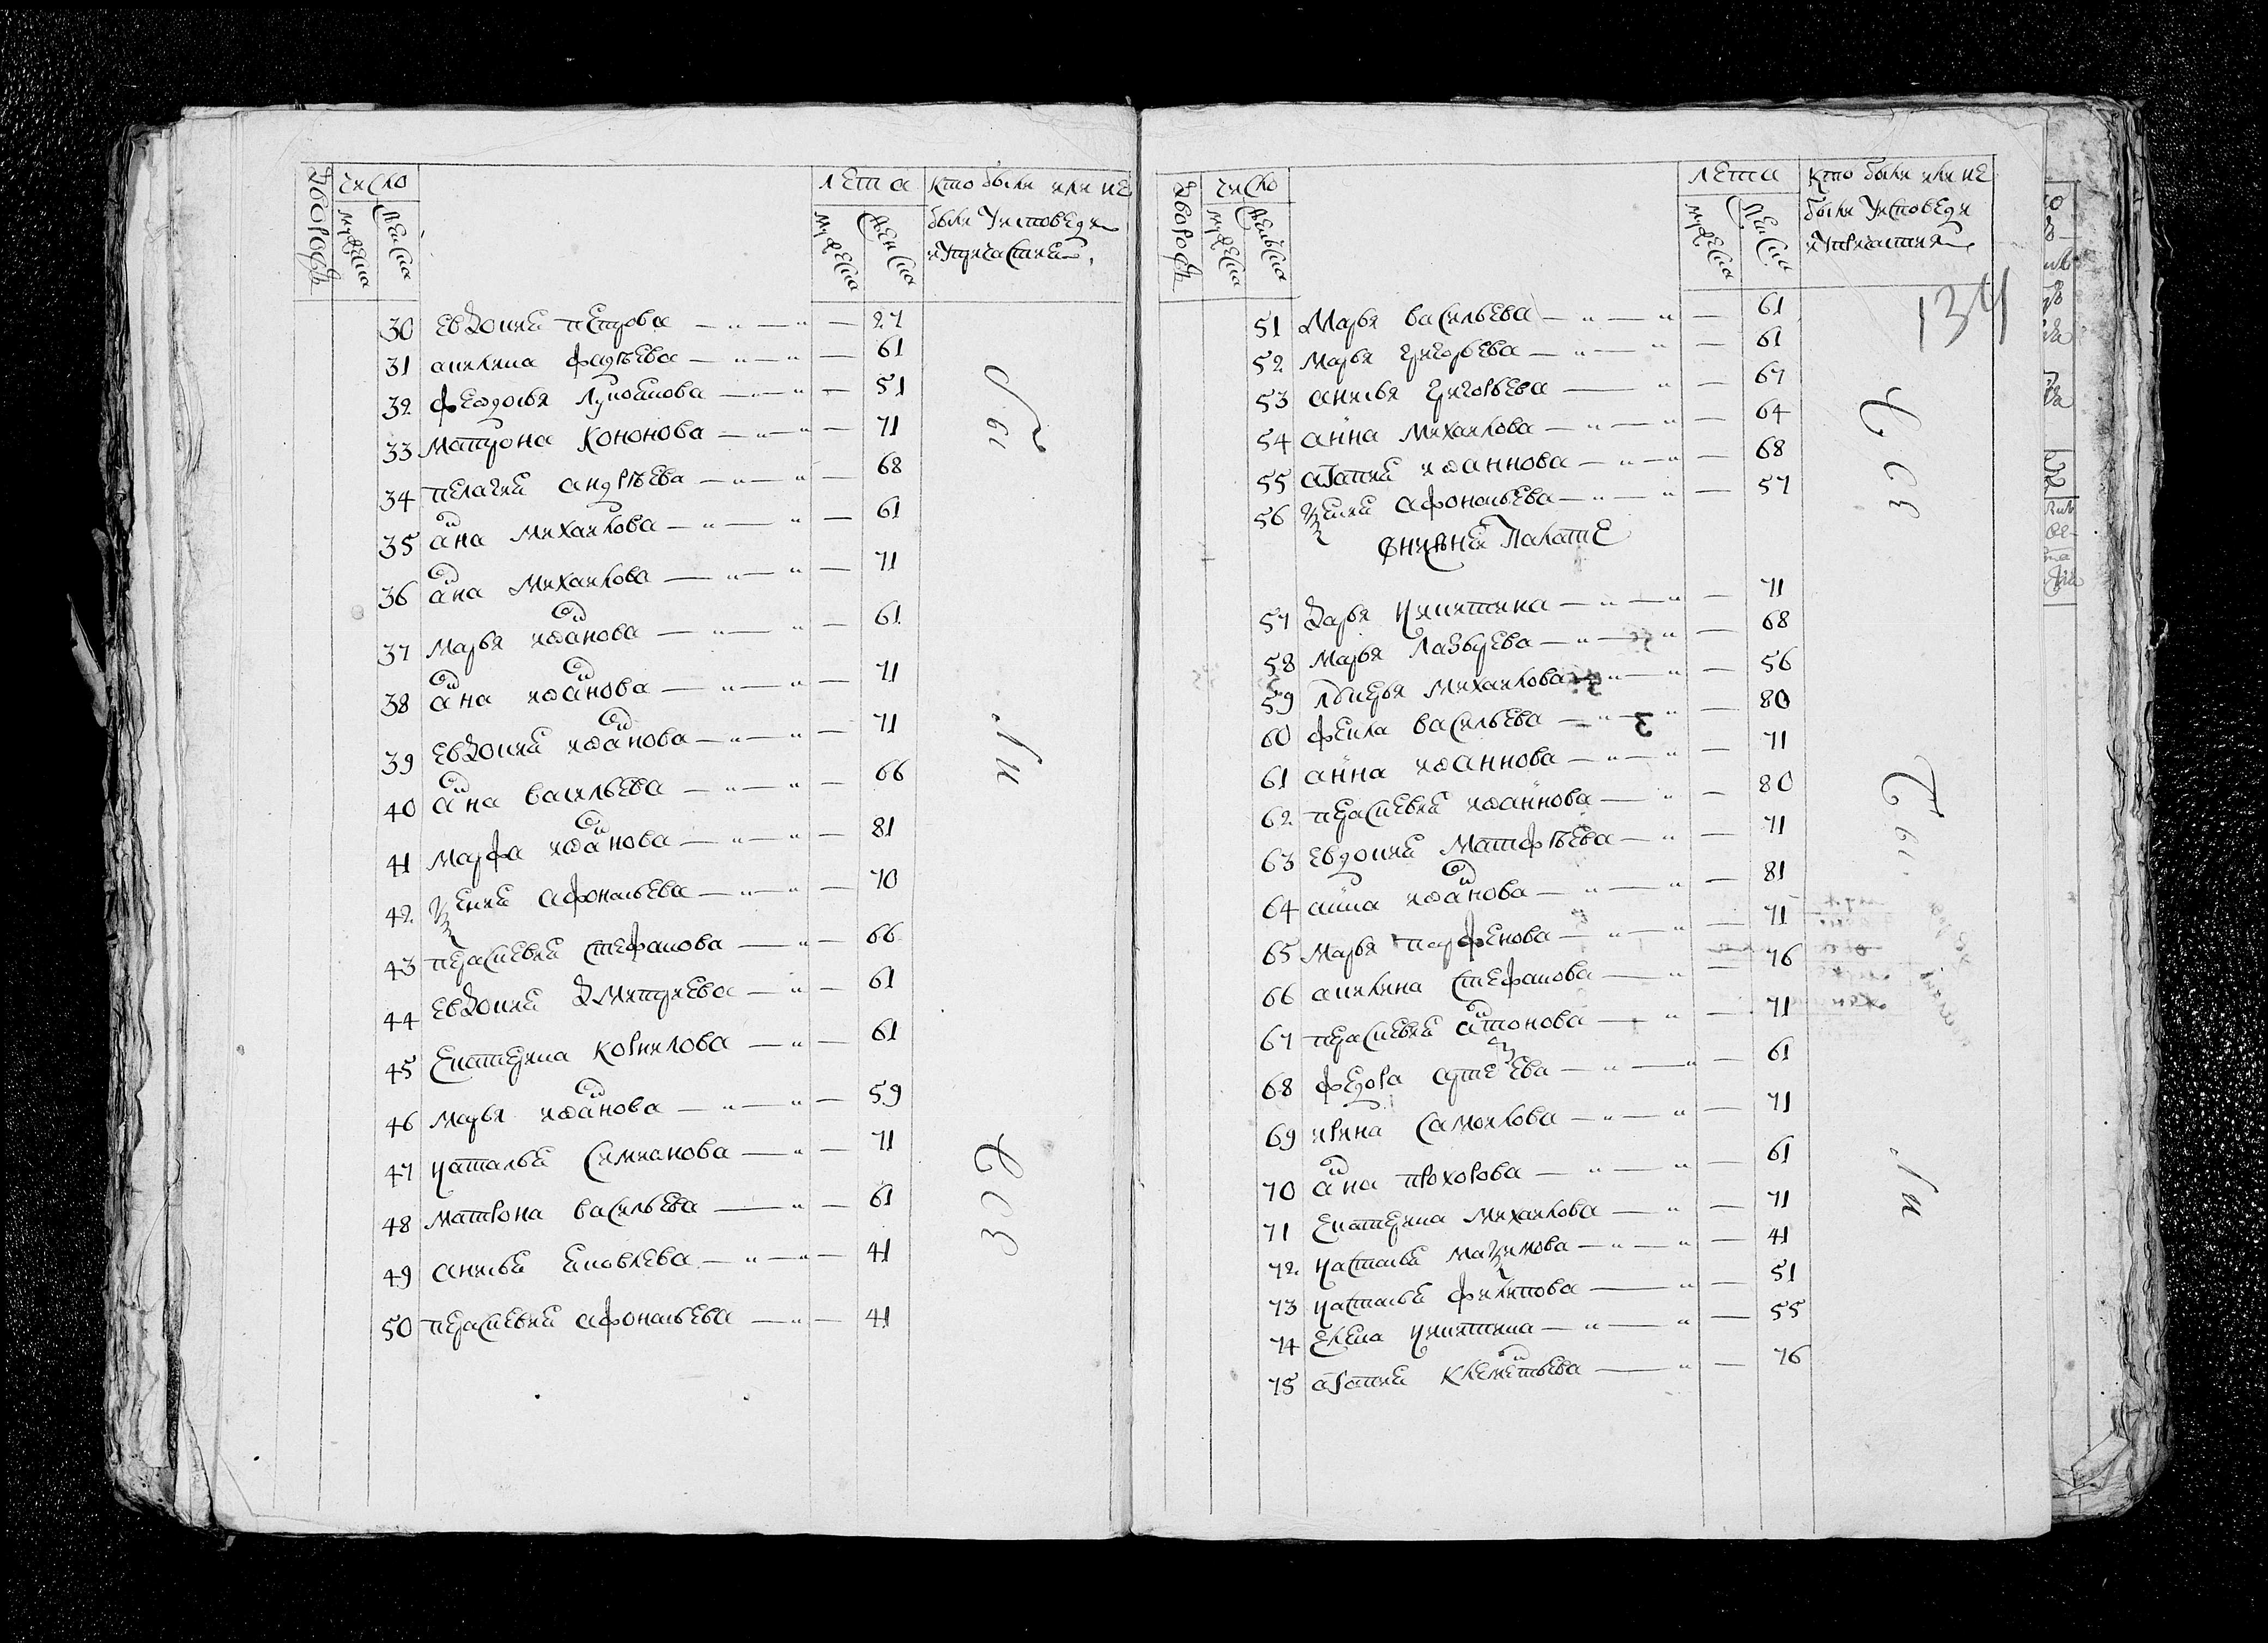 Дворовъ
число
мужеска
женска
лета
мужеска
женска
кто были или не
были у исповеди
и у причастия
30 Евдокия Петрова — „ — „ — 27
31 Акилина Фадѣева — „ — „ — 61
32 Феодосья Лукоянова — „ — „ — 51
33 Матрона Кононова — „ — „ — 71
34 Пелагия Андрѣева — „ — „ — 68
35 Анна Михаилова — „ — „ — 61
36 Анна Михаилова — „ — „ — 71
37 Марья Иѡанова — „ — „ — 61
38 Анна Иѡанова — „ — „ — 71
39 Евдокия Иѡанова — „ — „ — 71
40 Анна Васильева — „ — „ — 66
41 Марфа Иѡанова — „ — „ — 81
42 Ѯения Афонасьева — „ — „ — 70
43 Прасковия Стефанова — „ — 66
44 Евдокия Дмитриева — „ — 61
45 Екатерина Корнилова — „ — 61
46 Марья Иѡанова — „ — „ — 59
47 Наталья Симианова — „ — 71
48 Матрона Васильева — „ — 61
49 Анисья Яковлева — „ — „ — 41
50 Прасковия Афонасьева — „ — 41
Дворовъ
число
мужеска
женска
лета
мужеска
женска
кто были или не
были у исповеди
и у причастия
134
51 Марья Васильева — „ — „ — 61
52 Марья Григорьева — „ — „ — 61
53 Анисья Григорьева — „ — 67
54 Анна Михаилова — „ — „ — 64
55 Агапия Иѡаннова — „ — „ — 68
56 Ѯения Афонасьева — „ — „ — 57
Палате
57 Дарья Никитина — „ — „ — 71
58 Марья Лазырева — „ — „ — 68
59 Михаилова — „ — „ — 56
60 Фекла Васильева — „ — „ — 80
61 Анна Иѡаннова — „ — „ — 71
62 Прасковия Иѡаннова — „ — 80
63 Евдокия Матфѣева — „ — 71
64 Анна Иѡанова — „ — „ — 81
65 Марья Парфенова — „ — „ — 71
66 Акилина Стефанова — „ — 76
67 Прасковия Антонова — „ — 71
68 Федора Артемева — „ — „ — 61
69 Ирина Самоилова — „ — „ — 71
70 Анна Прохорова — „ — „ — 61
71 Екатерина Михаилова — „ — 71
72 Настасья Маѯимова — „ — „ — 41
73 Настасья Филипова — „ — 51
74 Елена Никитина — „ — „ — 55
75 Агапия Клементьева — „ — 76